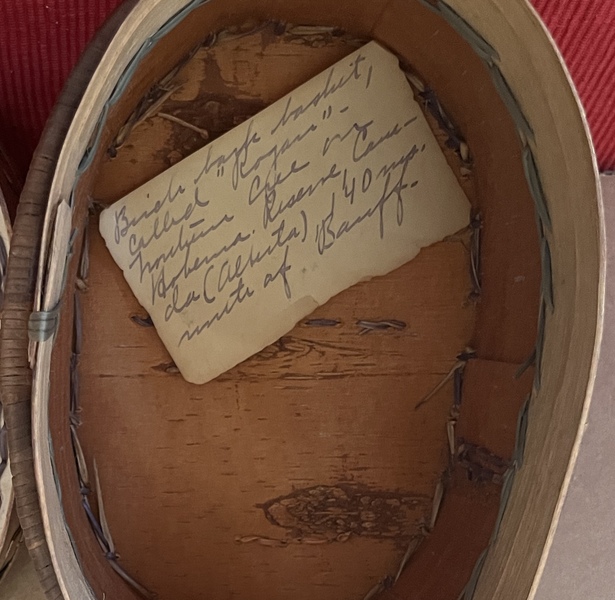 Birch bark basket,
called "Rogan"-
northern Cree on
Hobema. Reserve, Cana-
da (Alberta), 140 mi.
north of Banff.